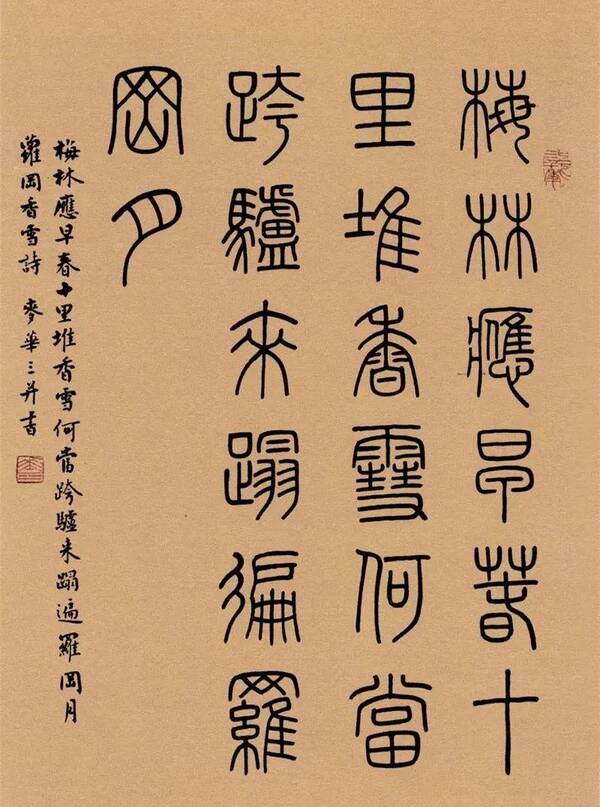 梅林應早春十
里堆香雪何當
跨驢來蹋徧羅
岡月
梅林應早春十里堆香雪何當跨驢来蹋遍羅岡月
蘿岡香雪詩 麥華三并書